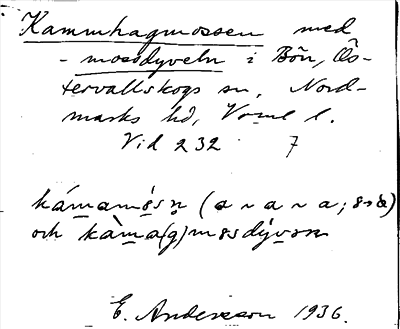 Kammhagmossen med
- mossdyveln i Bön, Ös-
tervallskogs sn, Nord-
marks hd, Vrml l.
Vid 232 7
kámamésn (a ~ a ~ a; ssa)
och kàma(g)mssdývsn
E. Andersson 1936.